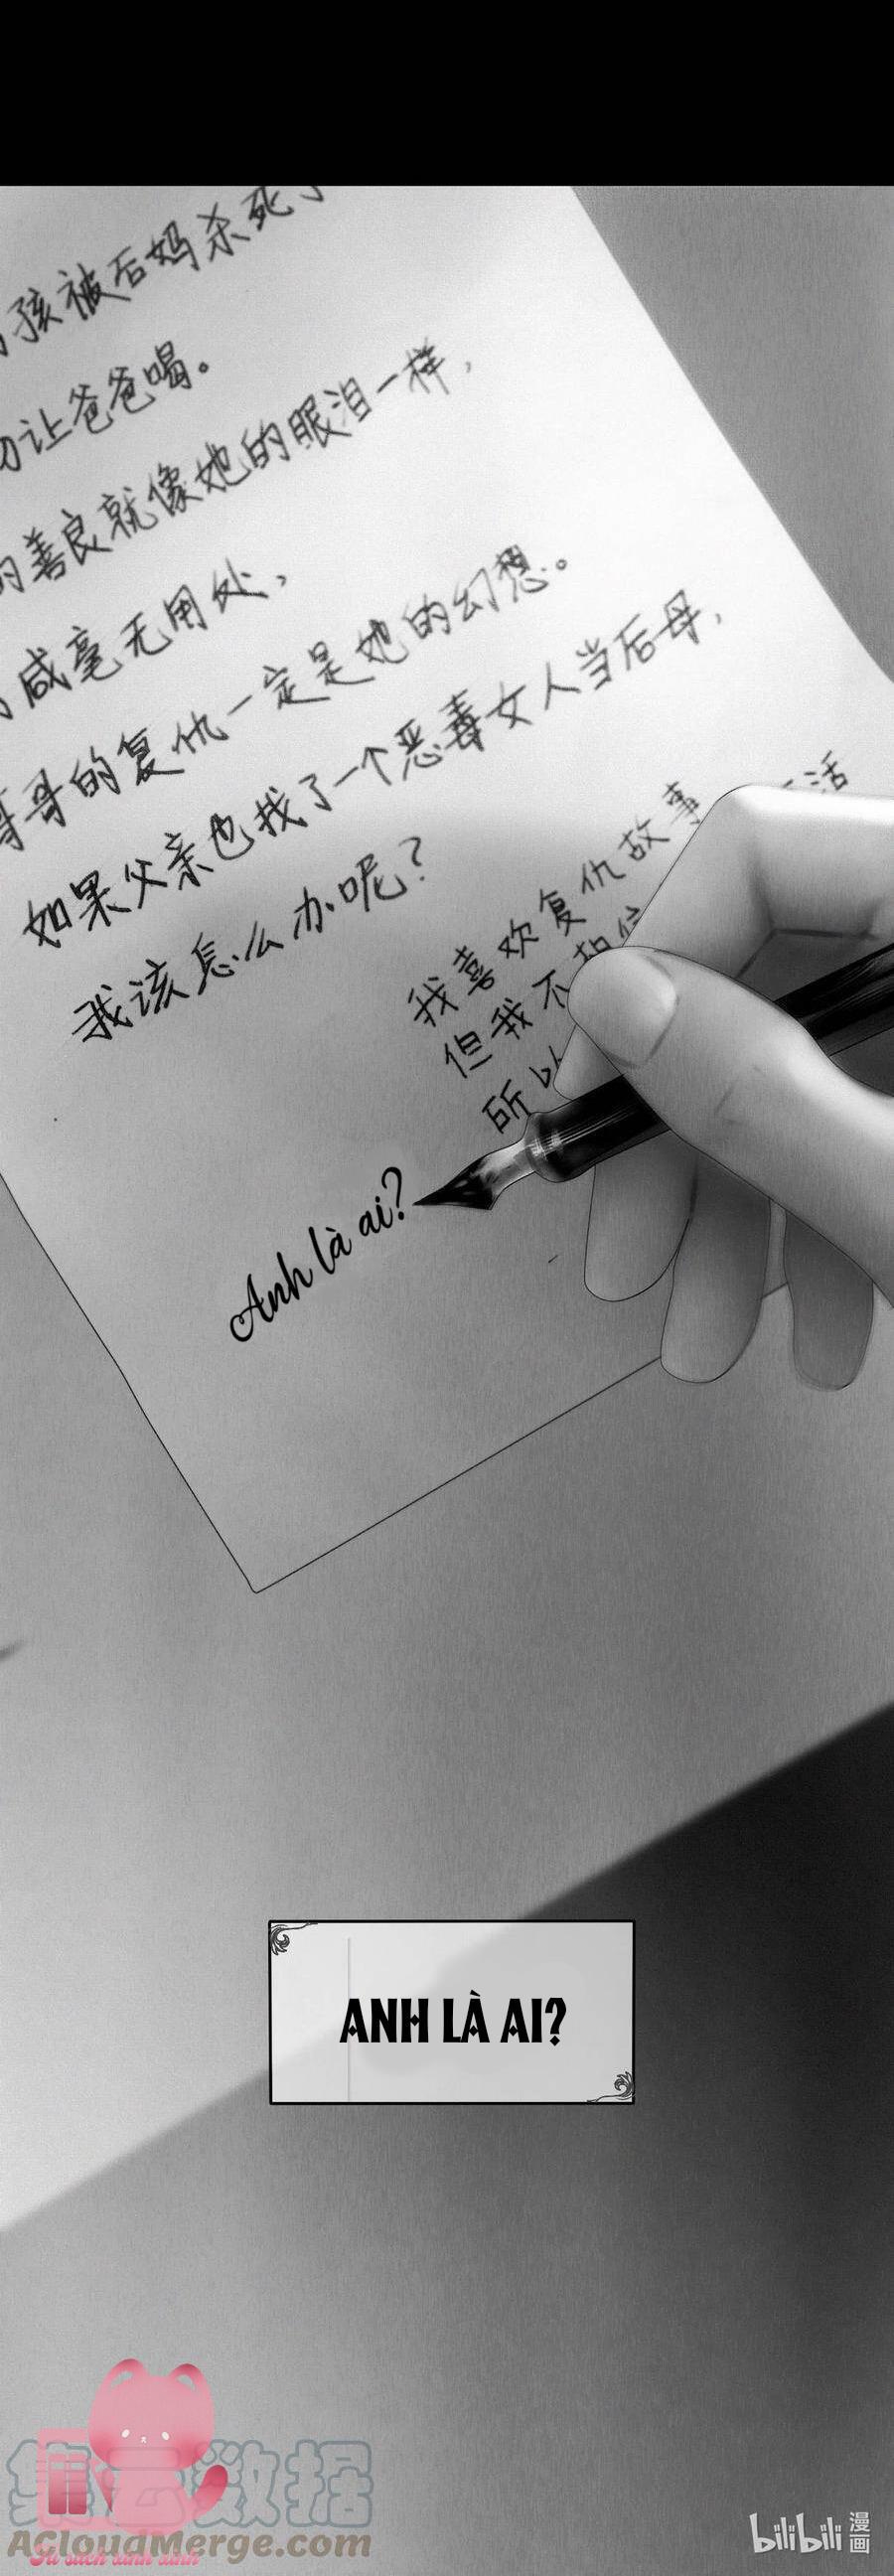 孩被后妈杀死了
让爸爸喝。
的善良就像她的眼泪一样,
咸毫无用处,
哥哥的复仇一定是她的幻想。
如果父亲也找了一个恶毒女人当后母,
我该怎么办呢?
我喜欢复仇故事 活
但我不相信
所以
Anh là ai?
ANH LÀ AI?
集云数据
ACloudMerge.com
Tủ sách xinh xinh
bilibili 漫画